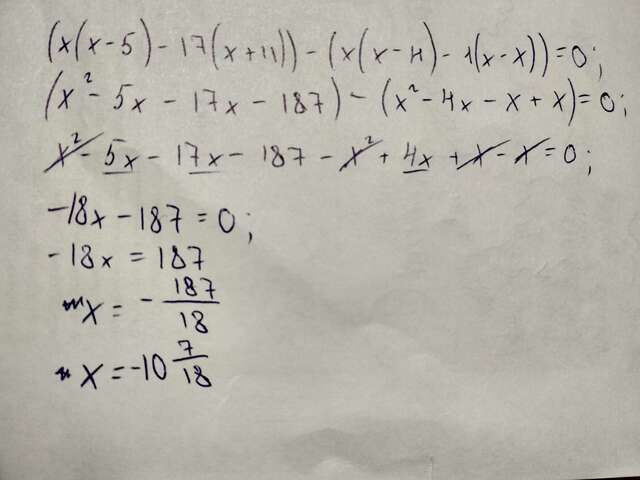 (x(x-5)-17(x+11))-(x(x-4)-1(x-x))=0;
(x²-5x-17x-187)-(x²-4x-x+x)=0;
x²-5x-17x-187-x²+4x+x-x=0;
-18x-187=0;
-18x=187
x=-187/18
x=-10 7/18